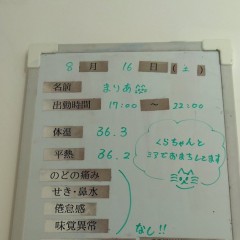 8 月 16 日 (土)
名前 まりあ
出勤時間 17:00 〜 22:00
体温 36.3
平熱 36.2
くらちゃんと
ココでおまちしてます
のどの痛み
せき・鼻水
倦怠感
味覚異常
なし!!